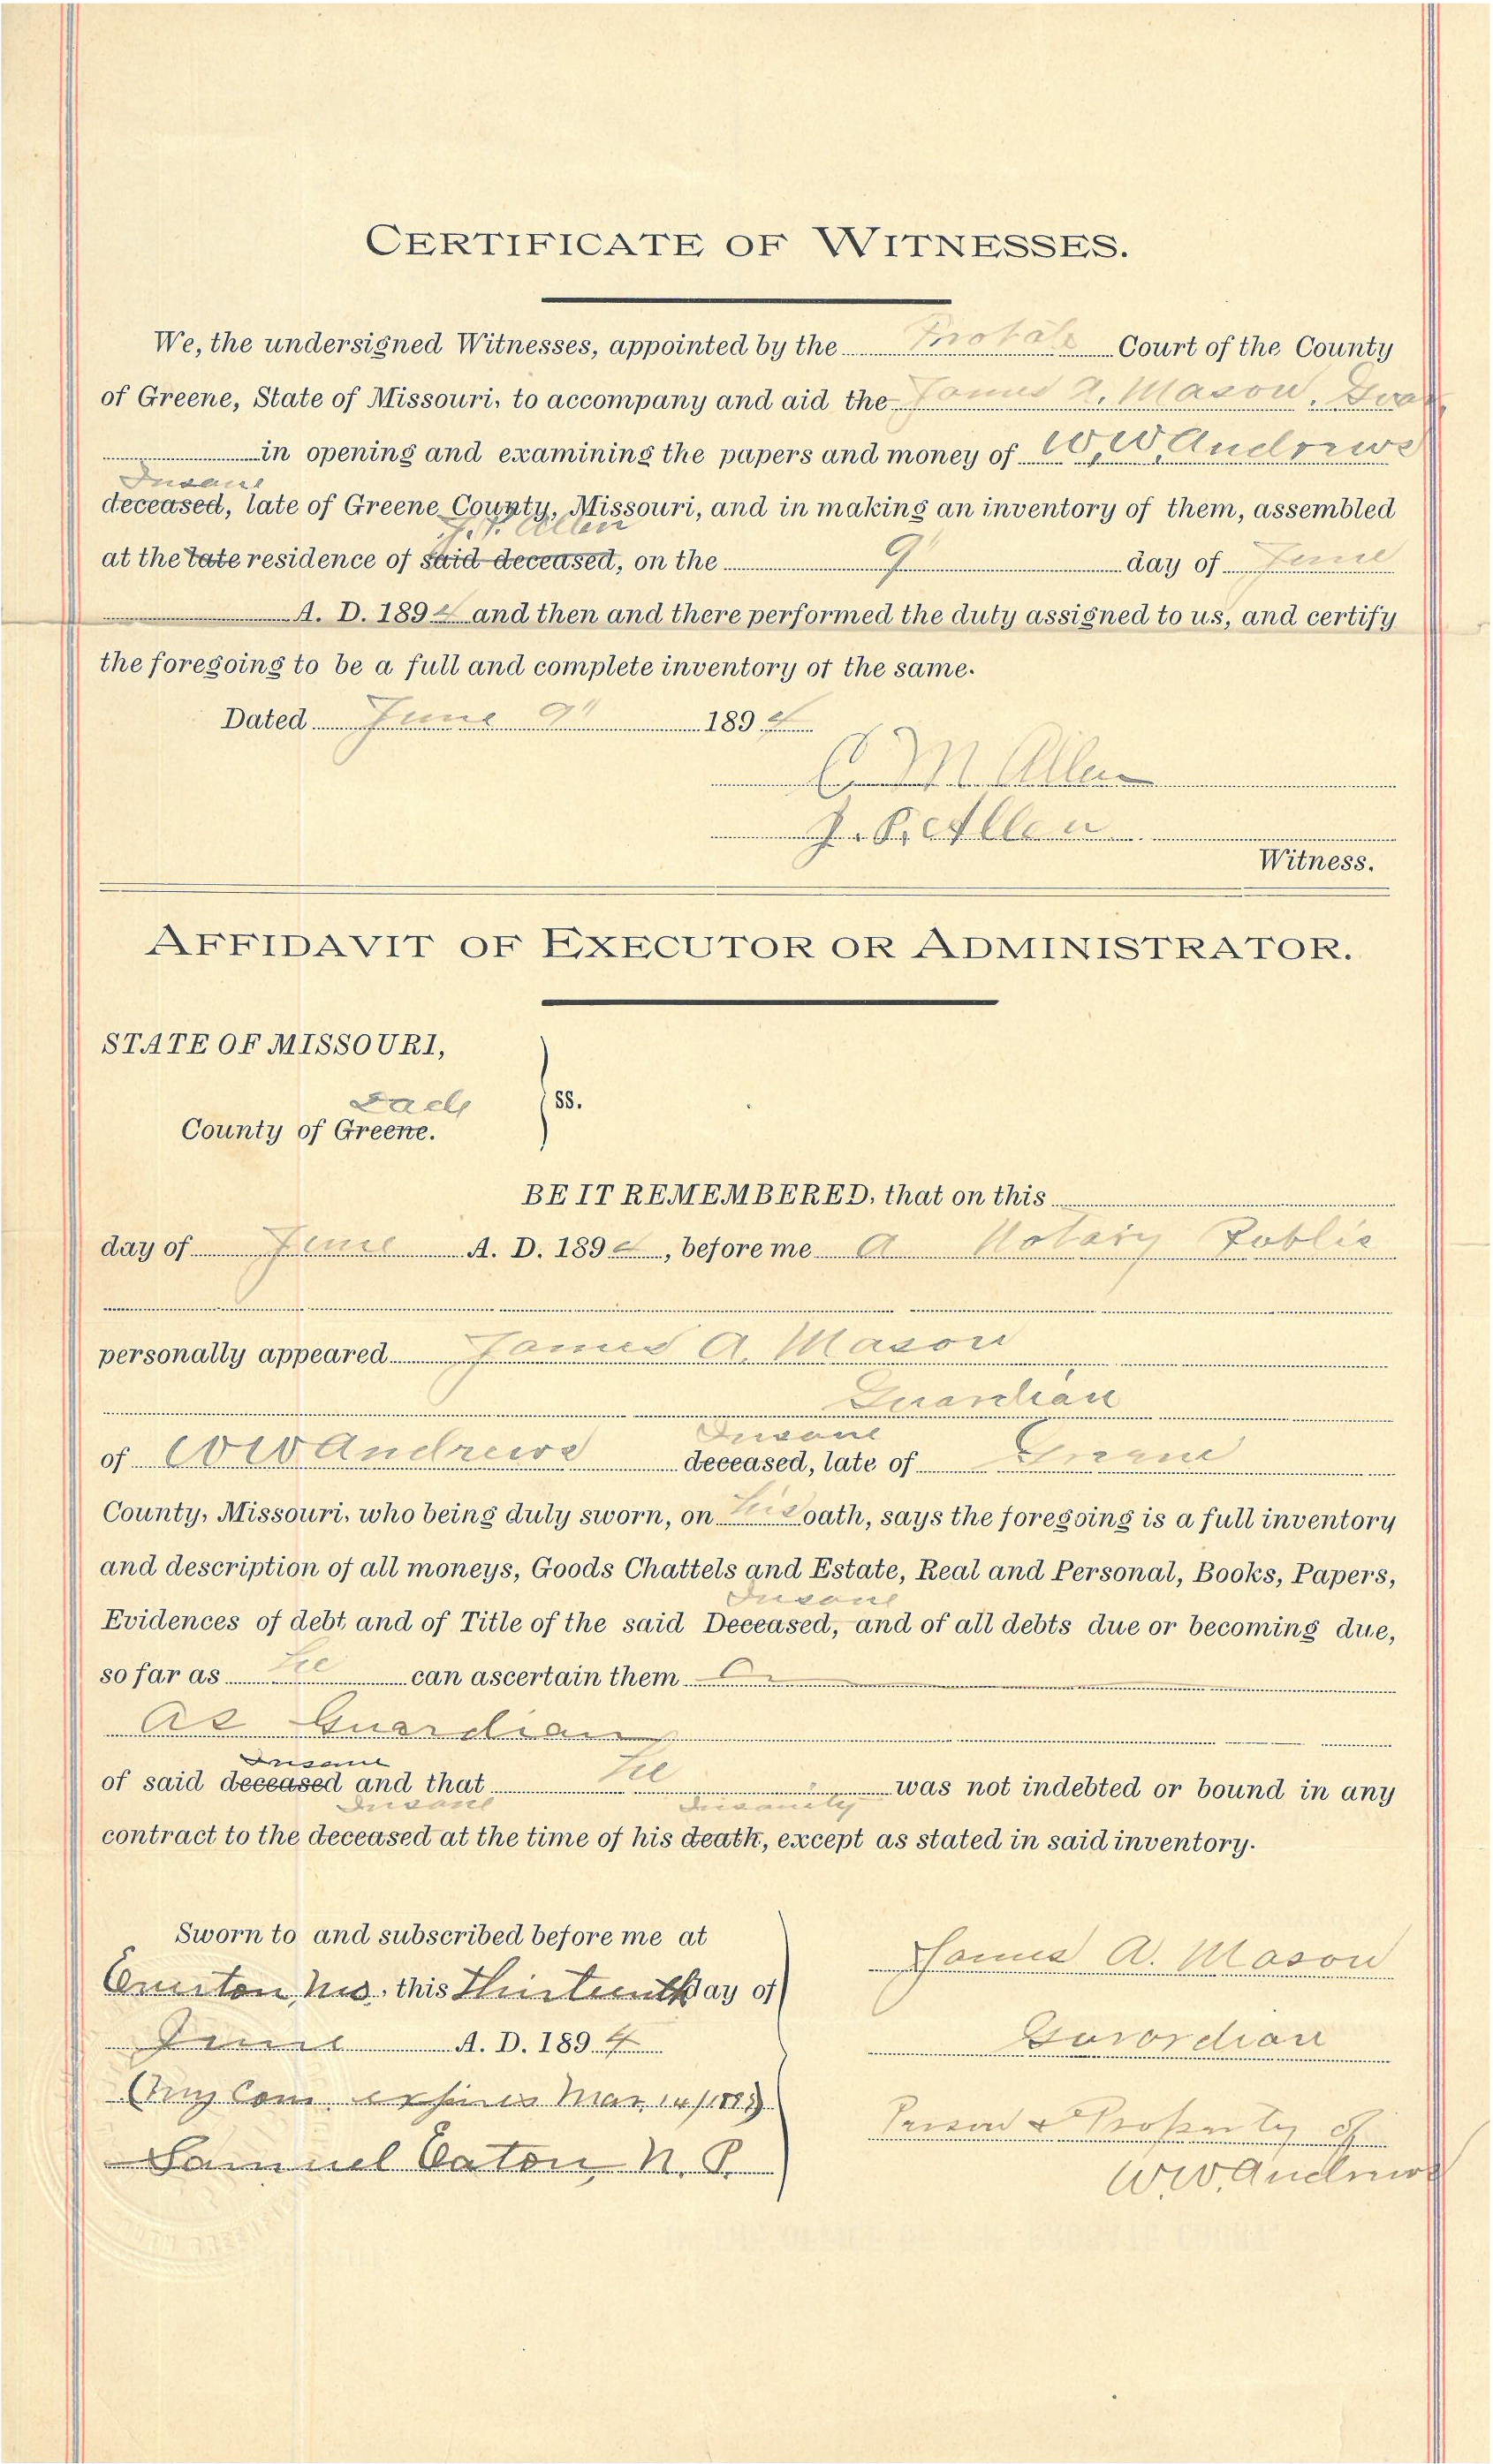 CERTIFICATE OF WITNESSES.
We, the undersigned Witnesses, appointed by the Probate Court of the County
of Greene, State of Missouri, to accompany and aid the James A. Mason,
in opening and examining the papers and money of W, W, Andrews
Insane
deceased, late of Greene County, Missouri, and in making an inventory of them, assembled
Allen
at the late residence of said deceased, on the 9" day of June
A. D. 1894 and then and there performed the duty assigned to us, and certify
the foregoing to be a full and complete inventory of the same.
Dated June 9" 1894
C. M. Allen
J. P. Allen
Witness.
AFFIDAVIT OF EXECUTOR OR ADMINISTRATOR.
STATE OF MISSOURI,
Dade
ss.
County of Greene.
BE IT REMEMBERED, that on this
day of June A. D. 1894, before me A Notary Public
personally appeared James A. Mason
Guardian
Insane
of W W Andrews deceased, late of Greene
County, Missouri, who being duly sworn, on his oath, says the foregoing is a full inventory
and description of all moneys, Goods Chattels and Estate, Real and Personal, Books, Papers,
Insane
Evidences of debt and of Title of the said Deceased, and of all debts due or becoming due,
so far as he can ascertain them
as Guardian
Insane
of said deceased and that he was not indebted or bound in any
Insane Insanity
contract to the deceased at the time of his death, except as stated in said inventory.
Sworn to and subscribed before me at
Everton Mo. this Thirteenth day of
June A. D. 1894
(My Com expires Mar 14/1897)
Samuel Eaton N. P.
James A. Mason
Guardian
Person & Property of
W.W. Andrews